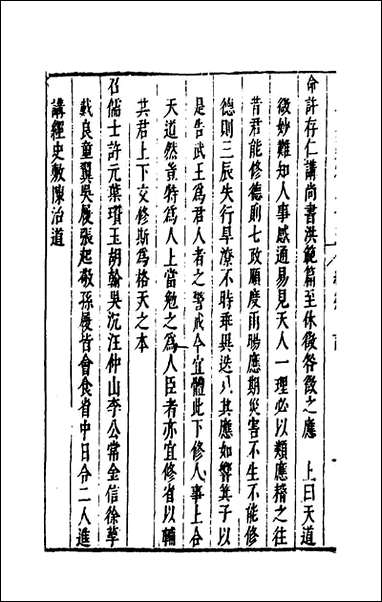 命許存仁講尚書洪範篇至休徵咎徵之應 上曰天道
微妙難知人事感通易見天人一理必以類應稽之往
昔君能修德則七政順度雨暘應期災害不生不能修
德則三辰失行旱潦不時乖異迭八其應如響箕子以
是告武王爲君人者之警戒今宜體此下修人事上合
天道然豈特爲人上當勉之爲人臣者亦宜修省以輔
其君上下交修斯爲格天之本
召儒士許元葉瓚玉胡翰吳沉汪仲山李公常金信徐孳
戴良童翼吳履張起敬孫履皆會食省中日令二人進
講經史敷陳治道